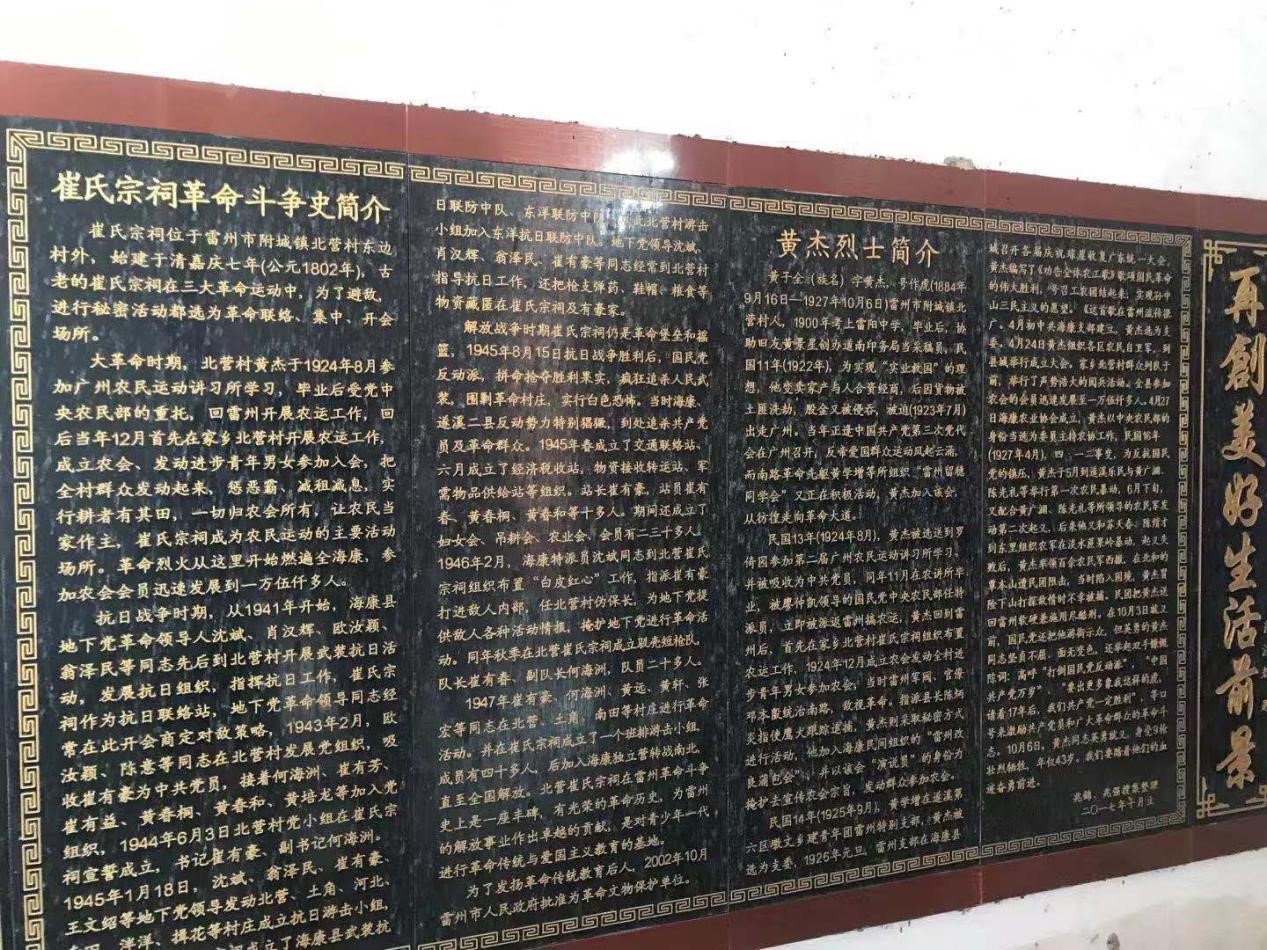 崔氏宗祠革命斗争史简介
崔氏宗祠位于雷州市附城镇北营村东边
村外，始建于清嘉庆七年(公元1802年)，古
老的崔氏宗祠在三大革命运动中，为了避敌，
进行秘密活动都选为革命联络、集中、开会
场所。
大革命时期，北营村黄杰于1924年8月参
加广州农民运动讲习所学习，毕业后受党中
央农民部的重托，回雷州开展农运工作，回
后当年12月首先在家乡北营村开展农运工作，
成立农会、发动进步青年男女参加入会，把
全村群众发动起来，惩恶霸，减租减息，实
行耕者有其田，一切归农会所有，让农民当
家作主，崔氏宗祠成为农民运动的主要活动
场所。革命烈火从这里开始燃遍全海康，参
加农会会员迅速发展到一万伍仟多人。
抗日战争时期，从1941年开始，海康县
地下党革命领导人沈斌、肖汉辉、欧汝颖、
翁泽民等同志先后到北营村开展武装抗日活
动，发展抗日组织，指挥抗日工作，崔氏宗
祠作为抗日联络站，地下党革命领导同志经
常在此开会商定对敌策略，1943年2月，欧
汝颖、陈意等同志在北营村发展党组织，吸
收崔有豪为中共党员，接着何海洲、崔有芳、
崔有益、黄春桐、黄春和、黄培龙等加入党
组织，1944年6月3日北营村党小组在崔氏宗
祠宣誓成立，书记崔有豪、副书记何海洲。
1945年1月18日，沈斌、翁泽民、崔有豪、
王文绍等地下党领导发动北营、土角、河北、
洋、揖花等村庄成立抗日游击小组，
成立了海康县武装抗
日联防中队、东洋联防中队 北营村游击
小组加入东洋抗日联防中队。地下党领导沈斌、
肖汉辉、翁泽民、崔有豪等同志经常到北营村
指导抗日工作，还把枪支弹药、鞋帽、粮食等
物资藏匿在崔氏宗祠及有豪家。
解放战争时期崔氏宗祠仍是革命堡垒和摇
篮，1945年8月15日抗日战争胜利后，国民党
反动派，拼命抢夺胜利果实，疯狂追杀人民武
装，围剿革命村庄，实行白色恐怖。当时海康、
遂溪二县反动势力特别猖獗，到处追杀共产党
员及革命群众。1945年春成立了交通联络站、
六月成立了经济税收站，物资接收转运站、军
需物品供给站等组织。站长崔有豪，站员崔有
春、黄春桐、黄春和等十多人。期间还成立了
妇女会、吊耕会、农业会、会员有二三十多人。
1946年2月，海康特派员沈斌同志到北营崔氏
宗祠组织布置“白皮红心”工作，指派崔有豪
打进敌人内部，任北营村伪保长，为地下党提
供敌人各种活动情报，掩护地下党进行革命活
动。同年秋季在北营崔氏宗祠成立驳壳短枪队，
队长崔有春、副队长何海洲，队员二十多人。
1947年崔有豪、何海洲、黄远、黄轩、张
宏等同志在北营、土角、南田等村庄进行革命
活动。并在崔氏宗祠成立了一个班排游击小组，
成员有四十多人，后加入海康独立营转战南北，
直至全国解放。北营崔氏宗祠在雷州革命斗争
史上是一座丰碑，有光荣的革命历史，为雷州
的解放事业作出卓越的贡献，是对青少年一代
进行革命传统与爱国主义教育的基地。
为了发扬革命传统教育后人，2002年10月
雷州市人民政府批准为革命文物保护单位。
黄杰烈士简介
黄于全(族名) 字黄杰，号作虎(1884年
9月16日—1927年10月6日)雷州市附城镇北
营村人，1900年考上雷阳中学，毕业后，协
助旧友黄景星创办道南印务局当采稿员，民
国11年(1922年)，为实现“实业救国”的理
想，他变卖家产与人合资经商，后因货物被
土匪洗劫，股金又被侵吞，被迫(1923年7月)
出走广州。当年正逢中国共产党第三次党代
会在广州召开，反帝爱国群众运动风起云涌，
而南路革命先驱黄学增等所组织“雷州留穗
同学会”又正在积极活动，黄杰加入该会，
从彷徨走向革命大道。
民国13年(1924年8月)，黄杰被选送到罗
倚因参加第二届广州农民运动讲习所学习，
并被吸收为中共党员，同年11月在农讲所毕
业，被廖仲凯领导的国民党中央农民部任特
派员，立即被派返雷州搞农运，黄杰回到雷
州后，首先在家乡北营村崔氏宗祠组织布置
农运工作，1924年12月成立农会发动全村进
步青年男女参加农会，当时雷州军阀、官僚
邓本殷统治南路，敌视革命，指派县长陈炳
炎指使鹰犬跟踪追捕，黄杰则采取秘密方式
进行活动，他加入海康民间组织的“雷州改
良蒲包会”，并以该会“演说员”的身份为
掩护去宣传农会宗旨，发动群众参加农会。
民国14年(1925年9月)，黄学增在遂溪第
六区墩文乡建青年团雷州特别支部，黄杰被
选为支委，1926年元旦，雷州支部在海康县
城召开各届庆祝琼崖收复广东统一大会，
黄杰编写了《劝告全体农工歌》歌颂国民革命
的伟大胜利，号召工农团结起来，实现孙中
山三民主义的愿望。《这首歌在雷州流传很
广。4月初中共海康支部建立，黄杰选为支
委，4月24日黄杰组织各区农民自卫军，到
县城举行成立大会。家乡北营村群众列队于
前，举行了声势浩大的阅兵活动。全县参加
农会的会员迅速发展至一万伍仟多人。4月27
日海康农业协会成立，黄杰以中央农民部的
身份当选为委员主持农协工作，民国16年
(1927年4月)，四、一二事变，为反抗国民
党的镇压，黄杰于5月到遂溪乐民与黄广渊、
陈光礼等举行第一次农民暴动，6月下旬，
又配合黄广渊、陈光礼等所领导的农民军发
动第二次起义，后来他又和苏天春、陈绩才
到东里组织农军在淡水蔗果岭暴动，起义失
败后，黄杰率领百余农民军西撤，在北和的
覃木山遭民团阻击，当时陷入困境，黄杰冒
险下山打探敌情时不幸被捕，民团把黄杰送
回雷州软硬兼施用尽酷刑，在10月3日就义
前，国民党还把他游街示众，但英勇的黄杰
同志坚贞不屈，面无惧色，还举起双手慷慨
陈词：高呼“打倒国民党反动派”，“中国
共产党万岁”，“要出更多象我这样的虎，
请看17年后，我们共产党一定胜利”，等口
号来激励共产党员和广大革命群众的革命斗
志，10月6日，黄杰同志英勇就义，身受9枪
壮烈牺牲，年仅43岁。我们要踏着他们的血
迹奋勇前进。
搜集整理
二〇一七年十月立
再創美好生活前景